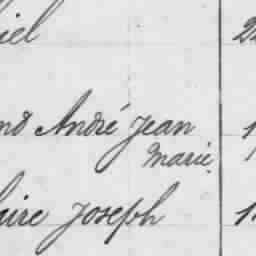 iel 2
nd André Jean 1
Marie
aire Joseph 1